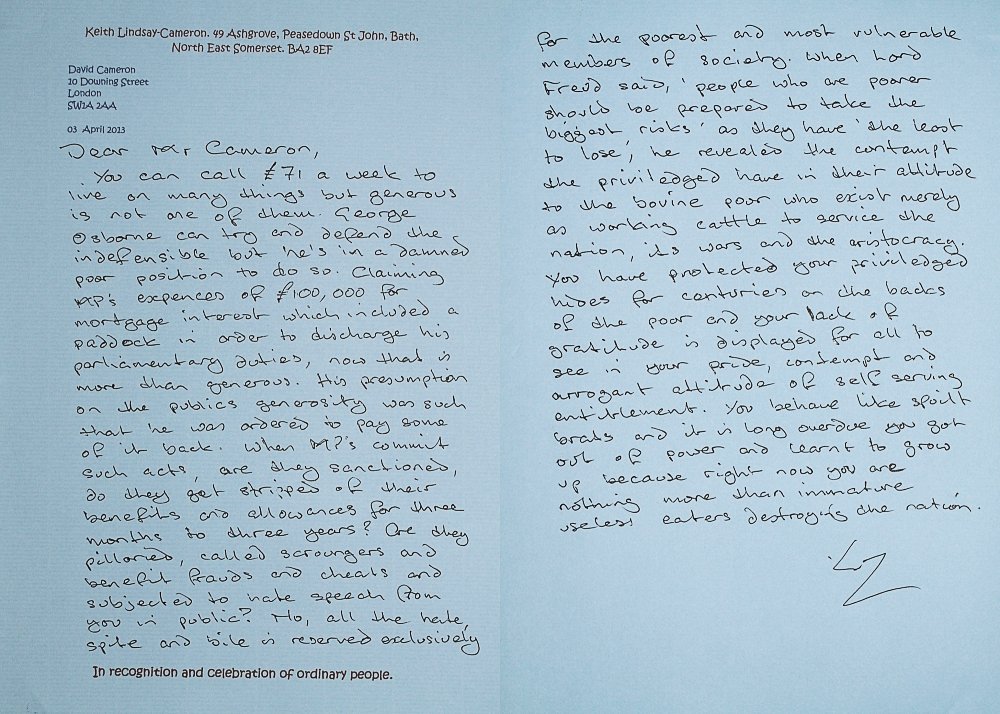 Keith Lindsay-Cameron. 49 Ashgrove, Peasedown St John, Bath,
North East Somerset. BA2 8EF
David Cameron
10 Downing Street
London
SW1A 2AA
03 April 2013
Dear Mr Cameron,
You can call £71 a week to
live on many things but generous
is not one of them. George
Osborne can try and defend the
indefensible but he's in a damned
poor position to do so. Claiming
MP's expences of £100,000 for
mortgage interest which included a
paddock in order to discharge his
parliamentary duties, now that is
more than generous. His presumption
on the publics generosity was such
that he was ordered to pay some
of it back. When MP's commit
such acts, are they sanctioned,
do they get stripped of their
benefits and allowances for three
months to three years? Are they
pilloried, called scroungers and
benefit frauds and cheats and
subjected to hate speech from
you in public? No, all the hate,
spite and bile is reserved exclusively
In recognition and celebration of ordinary people.
for the poorest and most vulnerable
members of society. When Lord
Freud said, 'people who are poorer
should be prepared to take the
biggest risks' as they have 'the least
to lose', he revealed the contempt
the priviledged have in their attitude
to the bovine poor who exist merely
as working cattle to service the
nation, its wars and the aristocracy.
You have protected your priviledged
hides for centuries on the backs
of the poor and your lack of
gratitude is displayed for all to
see in your pride, contempt and
arrogant attitude of self serving
entitlement. You behave like spoilt
brats and it is long overdue you got
out of power and learnt to grow
up because right now you are
nothing more than immature
useless eaters destroying the nation.